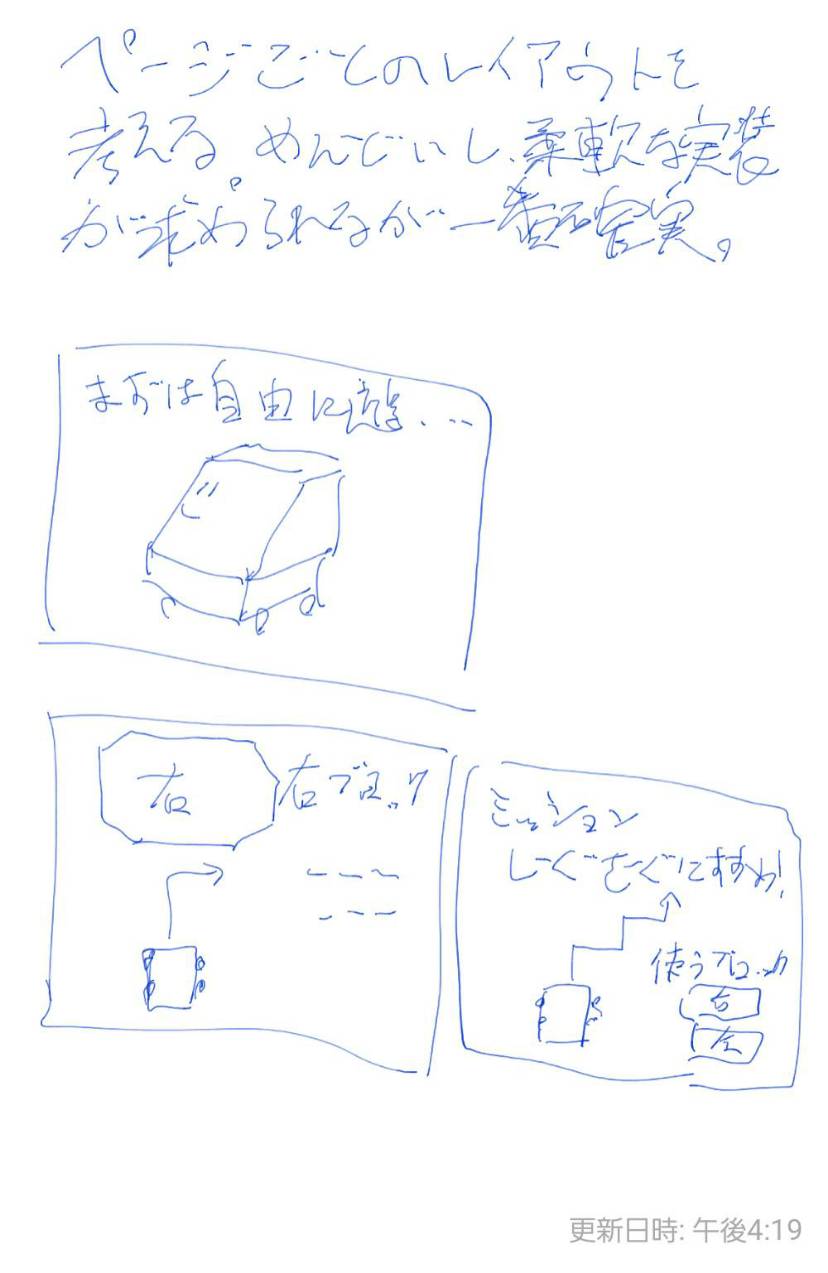 ページごとのレイアウトを
考える。めんどいし、柔軟な実装
が求められるが一番確実。
まずは自由に遊…
右
右ブロック
ミッション
じーぐざーぐにすすめ!
使うブロック
右
左
更新日時: 午後4:19